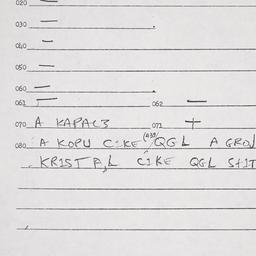 020 —
030 —
040 —
050 —
060 —
061 — 062 —
070 A KAPACS 071 +
080 A KOPU CIKE (439) QGL A GROJ
KRIST A,L CIKE QGL SHIT